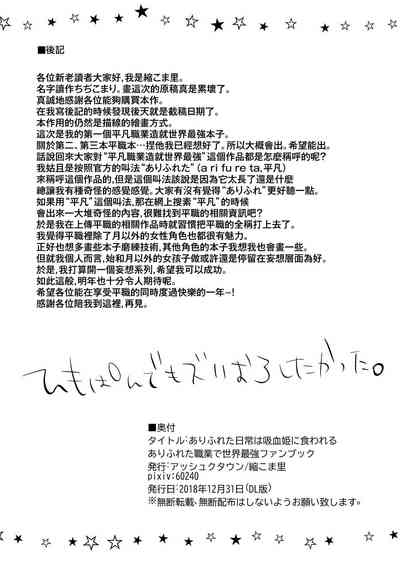 ■後記
各位新老讀者大家好,我是縮こま里。
名字讀作ちぢこまり。畫這次的原稿真是累壞了。
真誠地感謝各位能夠購買本作。
在我寫後記的時候發現後天就是截稿日期了。
本作用的仍然是描線的繪畫方式。
這次是我的第一個平凡職業造就世界最強本子。
關於第二、第三本平職本…捏他我已經想好了。所以大概會出。希望能出。
話說回來大家對“平凡職業造就世界最強”這個作品都是怎麼稱呼的呢?
我姑且是按照官方的叫法“ありふれた”(a ri fu re ta,平凡)
來稱呼這個作品的,但是這個叫法該說是因為它太長了還是什麼
總讓我有種奇怪的感覺感覺。大家有沒有覺得“ありふれ”更好聽一點。
如果用“平凡”這個叫法,那在網上搜素“平凡”的時候
會出來一大堆奇怪的內容,很難找到平職的相關資訊吧?
於是我在上傳平職的相關作品時就習慣把平職的全稱打上去了。
我覺得平職裡除了月以外的女性角色也都很有魅力。
正好也想多畫些本子磨練技術,其他角色的本子我想我也會畫一些。
但就我個人而言,始和月以外的女孩子做或許還是停留在妄想層面為好。
於是,我打算開一個妄想系列,希望我可以成功。
如此這般,明年也十分令人期待呢。
希望各位能在享受平職的同時度過快樂的一年-!
感謝各位陪我到這裡,再見。
ひもぱんでもズリおろしたかった。
■奥付
タイトル:ありふれた日常は吸血姫に食われる
ありふれた職業で世界最強ファンブック
発行:アッシュクタウン/縮こま里
pixiv:60240
発行日:2018年12月31日(DL版)
※無断転載、無断配布はしないようお願い致します。